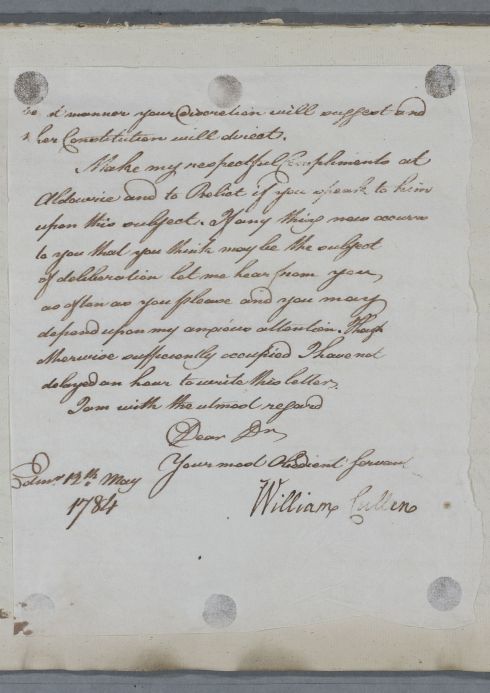 manner your Discretion will suggest and
her Constitution will direct.
Make my respectful Compliments at
Aldowrie and to Relict if you speak to him
upon this subject. If any thing new occurs
to you that you think may be the subject
of deliberation let me hear from you
as often as you please and you may
depend upon my anxious attention. Though
otherwise sufficiently occupied I have not
delayed an hour to write this letter.
I am with the utmost regard
Dear Dr
Your most Obedient Servant
Edinr 12th May
1784
William Cullen